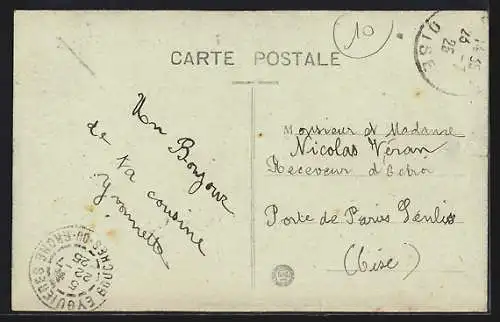 10
CARTE POSTALE
OISE
25
Un Bonjour
de ta cousine
Yvonnette
Monsieur et Madame
Nicolas Véran
Receveur d'Octroi
Porte de Paris Senlis
(Oise)
EYGUIERES
BOUCHES-DU-RHONE